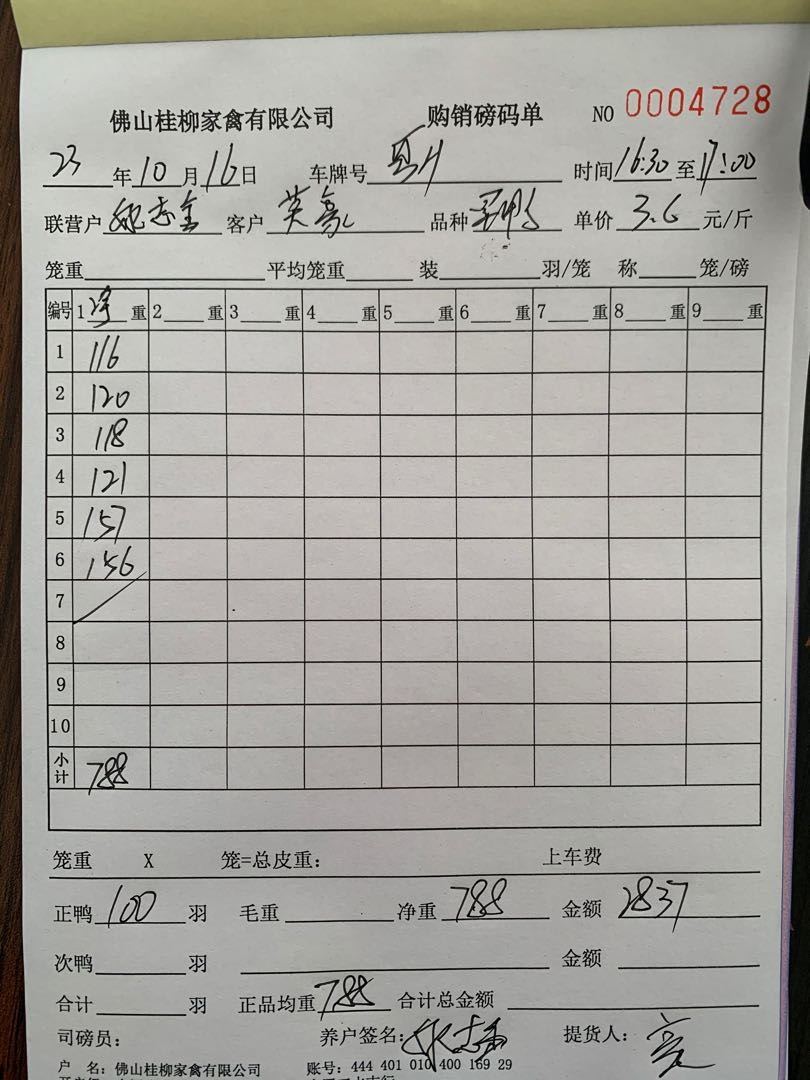 佛山桂柳家禽有限公司 购销磅码单 NO 0004728
23年10月16日 车牌号 时间16:30至17:00
联营户 志金 客户 英亮 品种 单价 3.6 元/斤
笼重 平均笼重 装 羽/笼 称 笼/磅
编号 1 净 重 2 重 3 重 4 重 5 重 6 重 7 重 8 重 9 重
1 116
2 120
3 118
4 121
5 157
6 156
7
8
9
10
小计 788
笼重 X 笼=总皮重: 上车费
正鸭 100 羽 毛重 净重 788 金额 2837
次鸭 羽 金额
合计 羽 正品均重 788 合计总金额
司磅员: 养户签名: 提货人: 亮
户 名: 佛山桂柳家禽有限公司 账号: 444 401 010 400 169 29